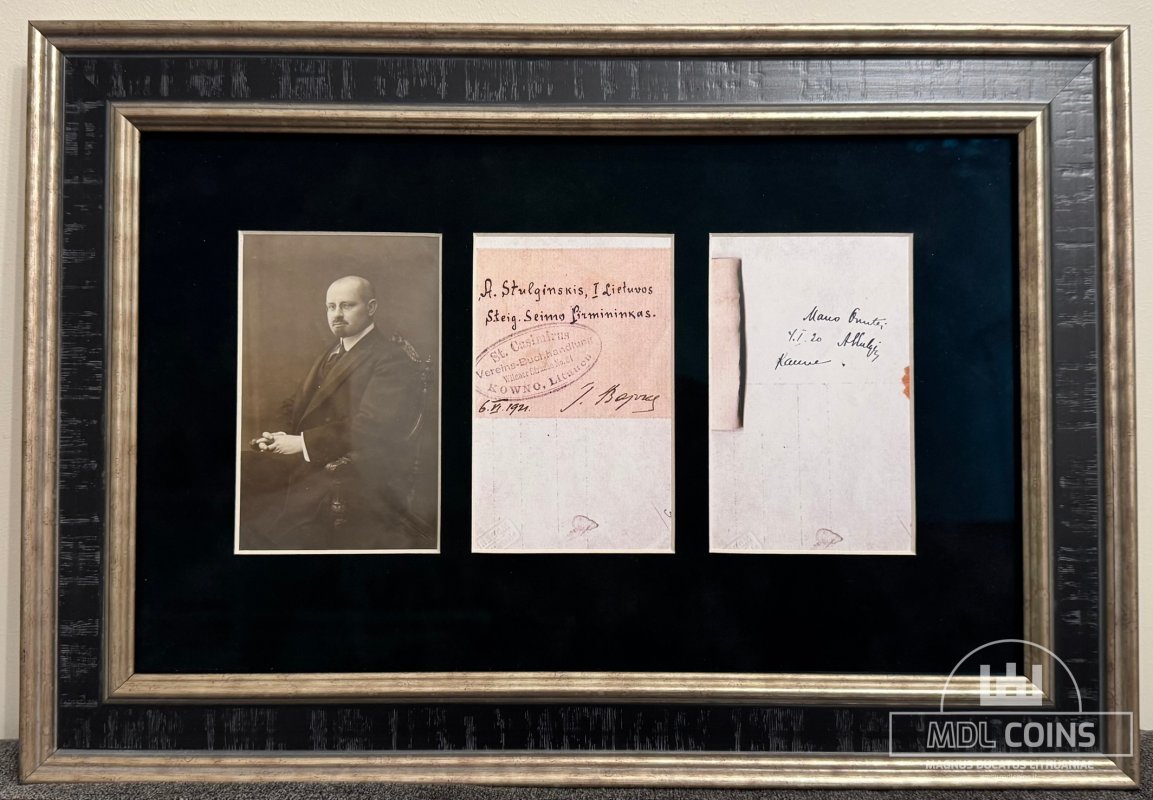 A. Stulginskis, I Lietuvos
Steig. Seimo Pirmininkas.
St. Casimirus
Vereins-Buchhandlung
KOWNO, Lituauen
6.VI.1921.
Mano
4.I.20
Kaune
MDL COINS
MAGNUS DUCATUS LITHUANIAE